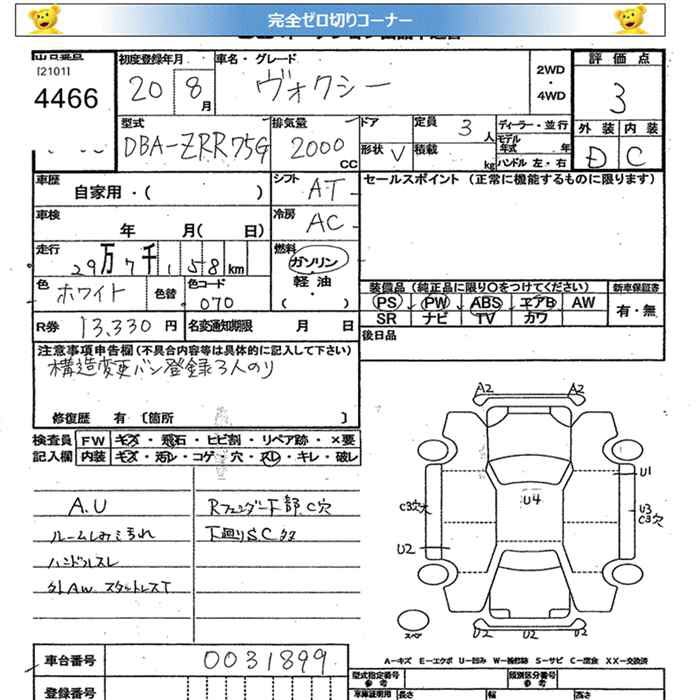 完全ゼロ切りコーナー
[2101]
4466
初度登録年月
20 8月
車名・グレード
ヴォクシー
2WD
・
4WD
評価点
3
外装 内装
D C
型式
DBA-ZRR75G
排気量
2000
CC
ドア
形状 V
定員 3人
積載 kg
ディーラー・並行
モデル
年式 年
ハンドル 左・右
車歴
自家用・( )
シフト
AT
セールスポイント (正常に機能するものに限ります)
車検
年 月( 日)
冷房
AC
走行
29万7千158km
燃料
ガソリン
軽油
・
( )
色
ホワイト
色替
色コード
070
装備品(純正品に限り○をつけてください)
PS PW ABS エアB AW
SR ナビ TV カワ
新車保証書
有・無
R券 13,330円
名変通知期限 月 日
後日品
注意事項申告欄(不具合内容等は具体的に記入して下さい)
構造変更バン登録3人のり
修復歴 有 〔箇所 〕
検査員
記入欄
FW キズ・飛石・ヒビ割・リペア跡・×要
内装 キズ・汚レ・コゲ・穴・スレ・キレ・破レ
A.U
ルームしみ汚れ
ハンドルスレ
外AW スタットレスT
Rフェンダー下部C穴
下廻りSC
A2 A2
U1
C3穴 U4 U3
C3穴
U2
U2 U2 U2
スペア
A-キズ E-エクボ U-凹み W-補修跡 S-サビ C-腐食 XX-交換済
車台番号
0031899
登録番号
型式指定番号
参考
類別区分番号
参考
車庫証明用 長さ 幅 高さ